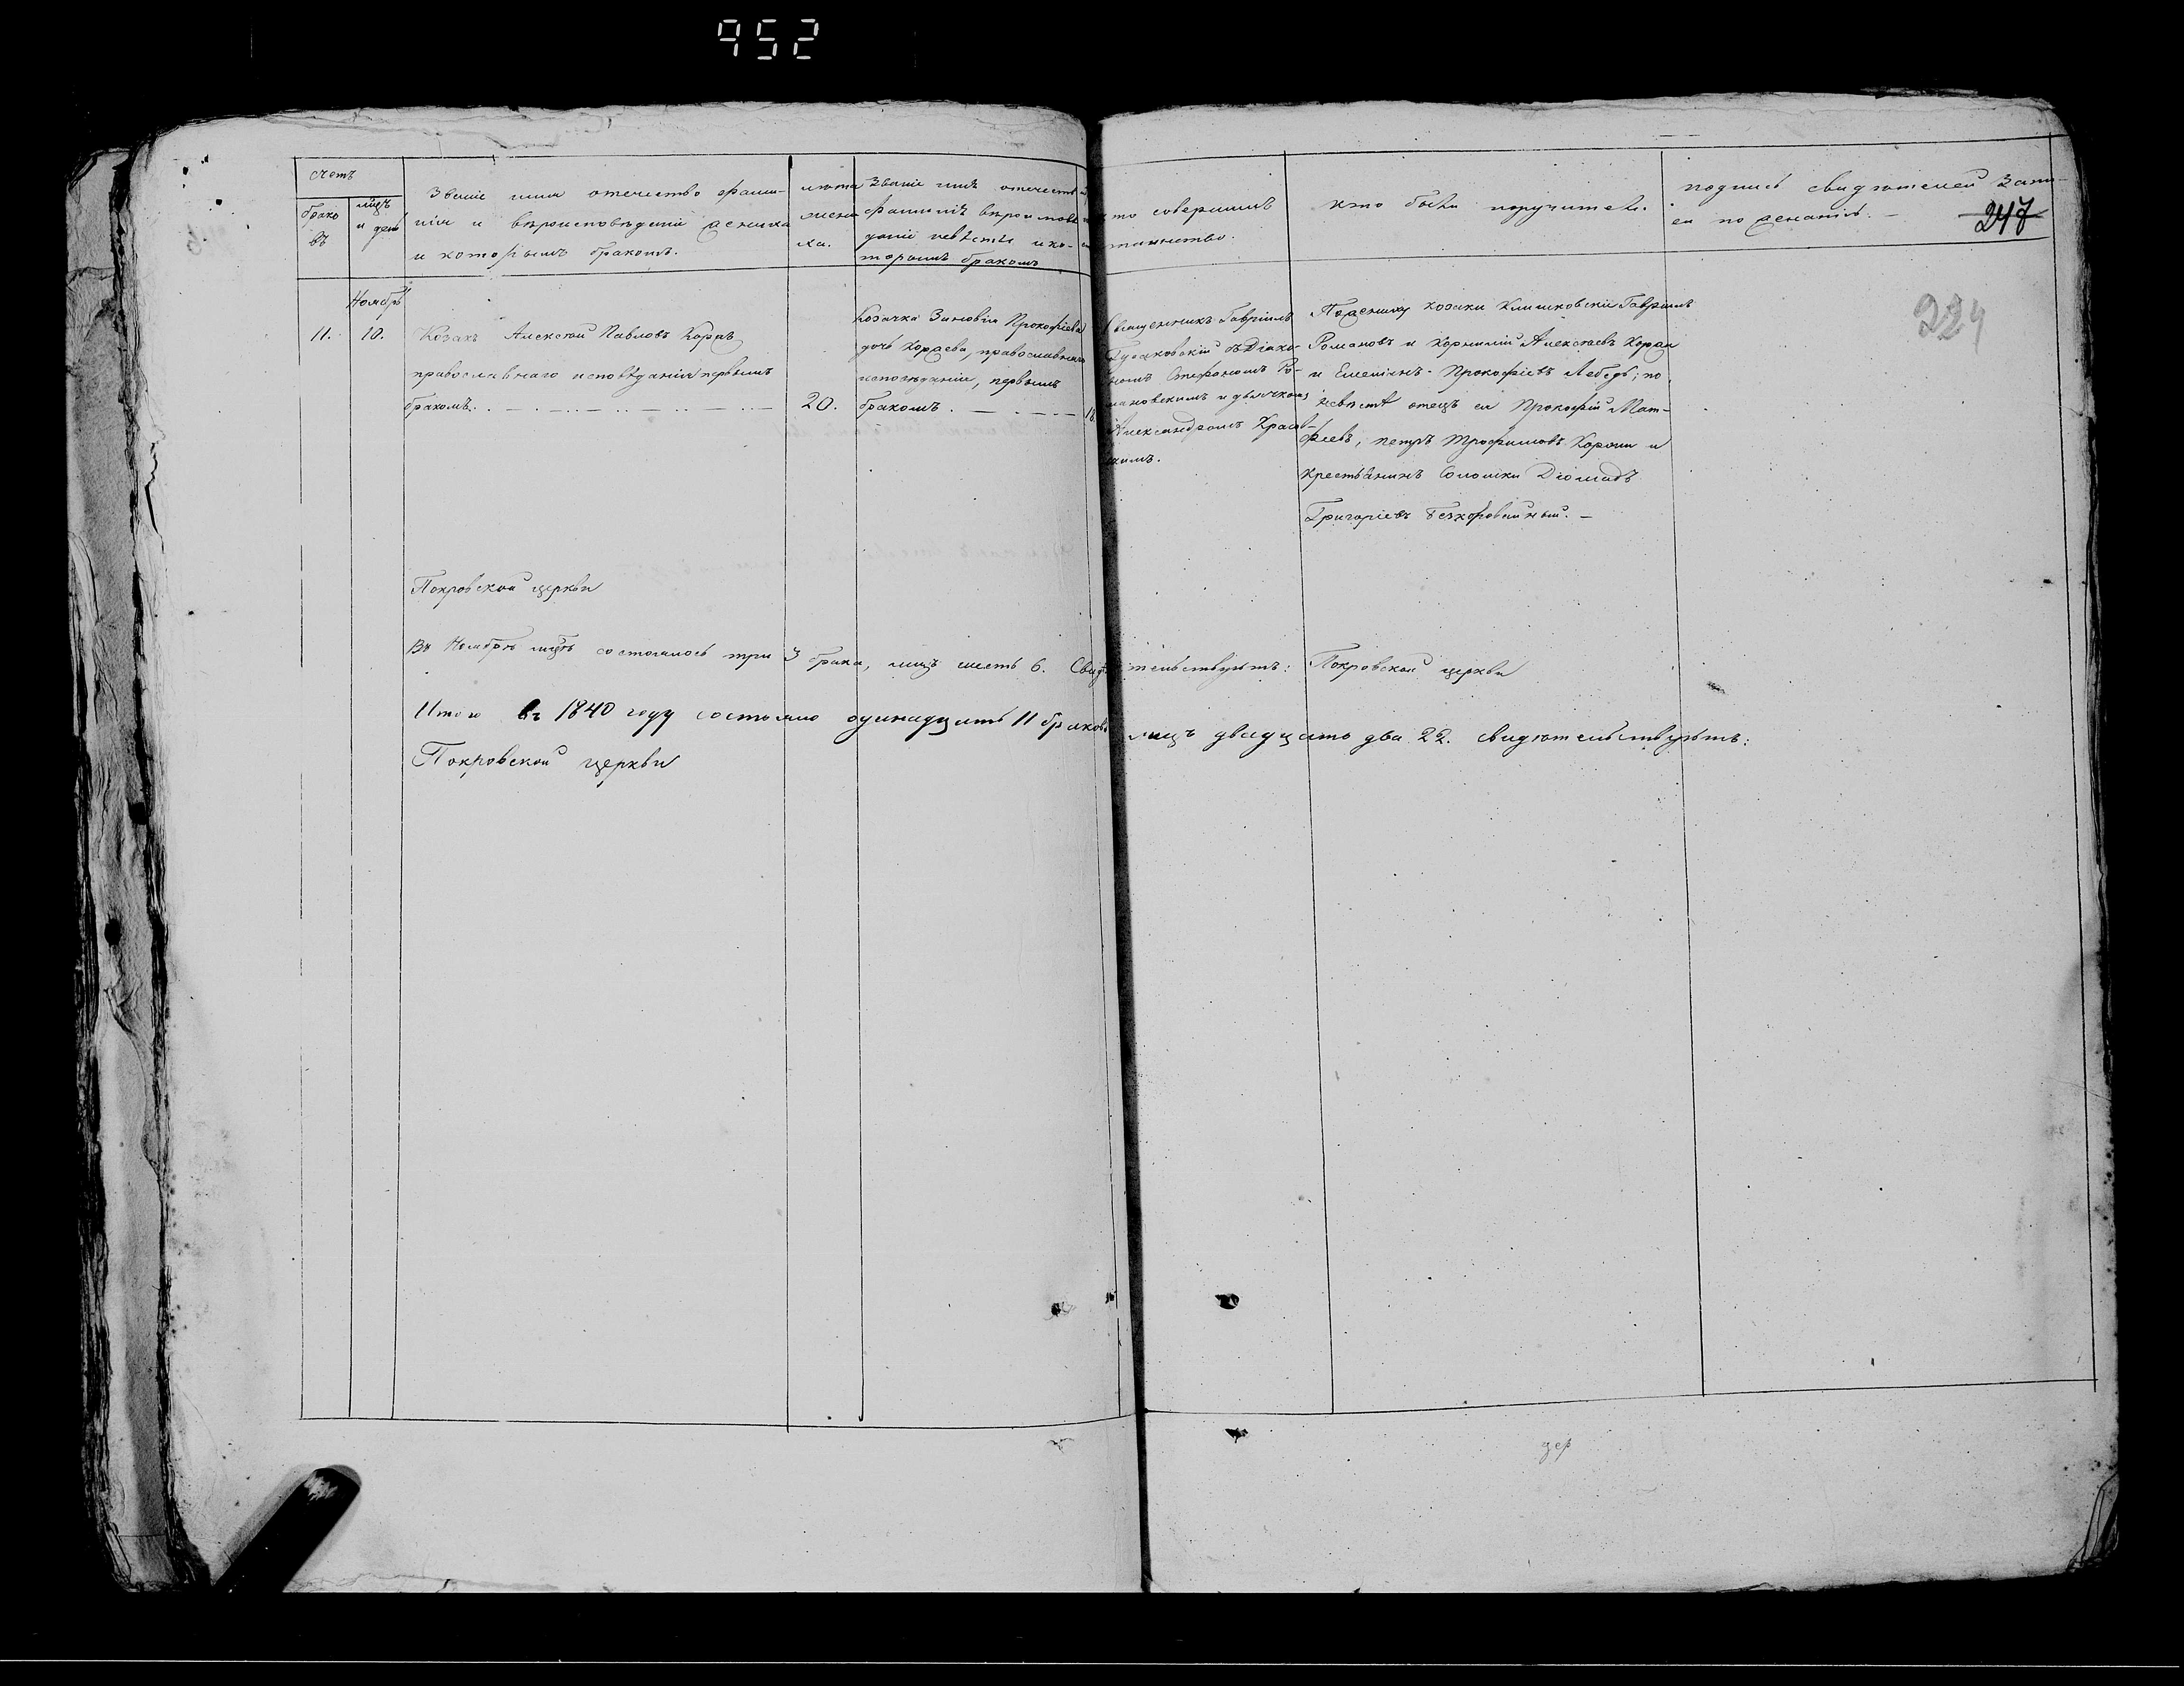 952
счетъ
брако
въ
мцъ
и день
Званіе имя отечество фами-
лія и вероисповѣданіе жениха
и которымъ бракомъ.
лѣта
жени
ха.
Званіе имя отечество
фамилія вероисповѣ
даніе невѣсты и ко-
торымъ бракомъ
кто совершалъ
таинство.
кто были поручители.
подпись свидѣтелей запи-
си по желанію. —
247
224
Ноябрь
11. 10.
Козакъ Алексѣй Павловъ Коржъ
православнаго исповѣданія первымъ
бракомъ.
20.
Козачка Зиновія Прокофіева
дочь Коржева, православнаго
исповѣданія, первымъ
бракомъ.
18
Священникъ Гавріилъ
съ Діако-
номъ Стефаномъ Ро-
мановскимъ и дьячкомъ
Александромъ
По жениху козаки Климковскіе Гавріилъ
Романовъ и Корнилій Алексѣевъ Коржи
и Емеліянъ Прокофіевъ Лебедь; по
невѣстѣ отецъ ея Прокофій Мат-
фіевъ, Петръ Трофимовъ Коржи и
крестьянинъ Соломки Діомидъ
Григоріевъ Безкоровайный. —
Покровской церкви
Въ Ноябрѣ мцѣ состоялось три 3 брака, лицъ шесть 6. Свидѣтельствуютъ: Покровской церкви
Итого въ 1840 году состояло одинадцать 11 браковъ лицъ двадцать два 22. свидѣтельствуютъ:
Покровской церкви
дер